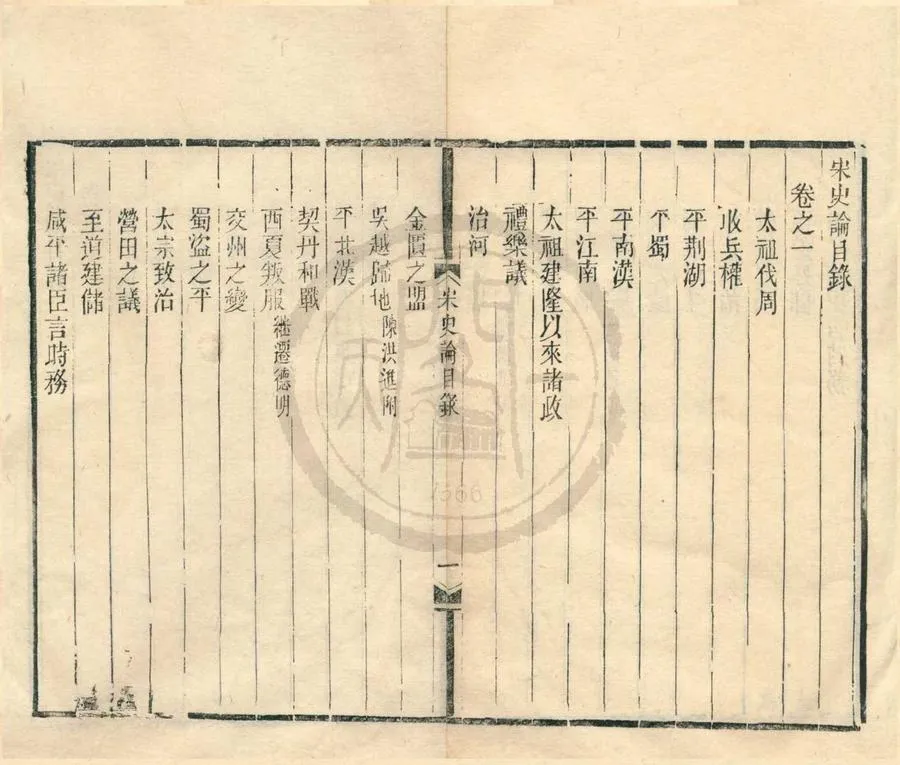 宋史論目錄
卷之一
太祖伐周
收兵權
平荆湖
平蜀
平南漢
平江南
太祖建隆以來諸政
禮樂議
治河
宋史論目錄
一
金匱之盟
吳越歸地 陳洪進附
平北漢
契丹和戰
西夏叛服 繼遷德明
交州之變
蜀盜之平
太宗致治
營田之議
至道建儲
咸平諸臣言時務
1566